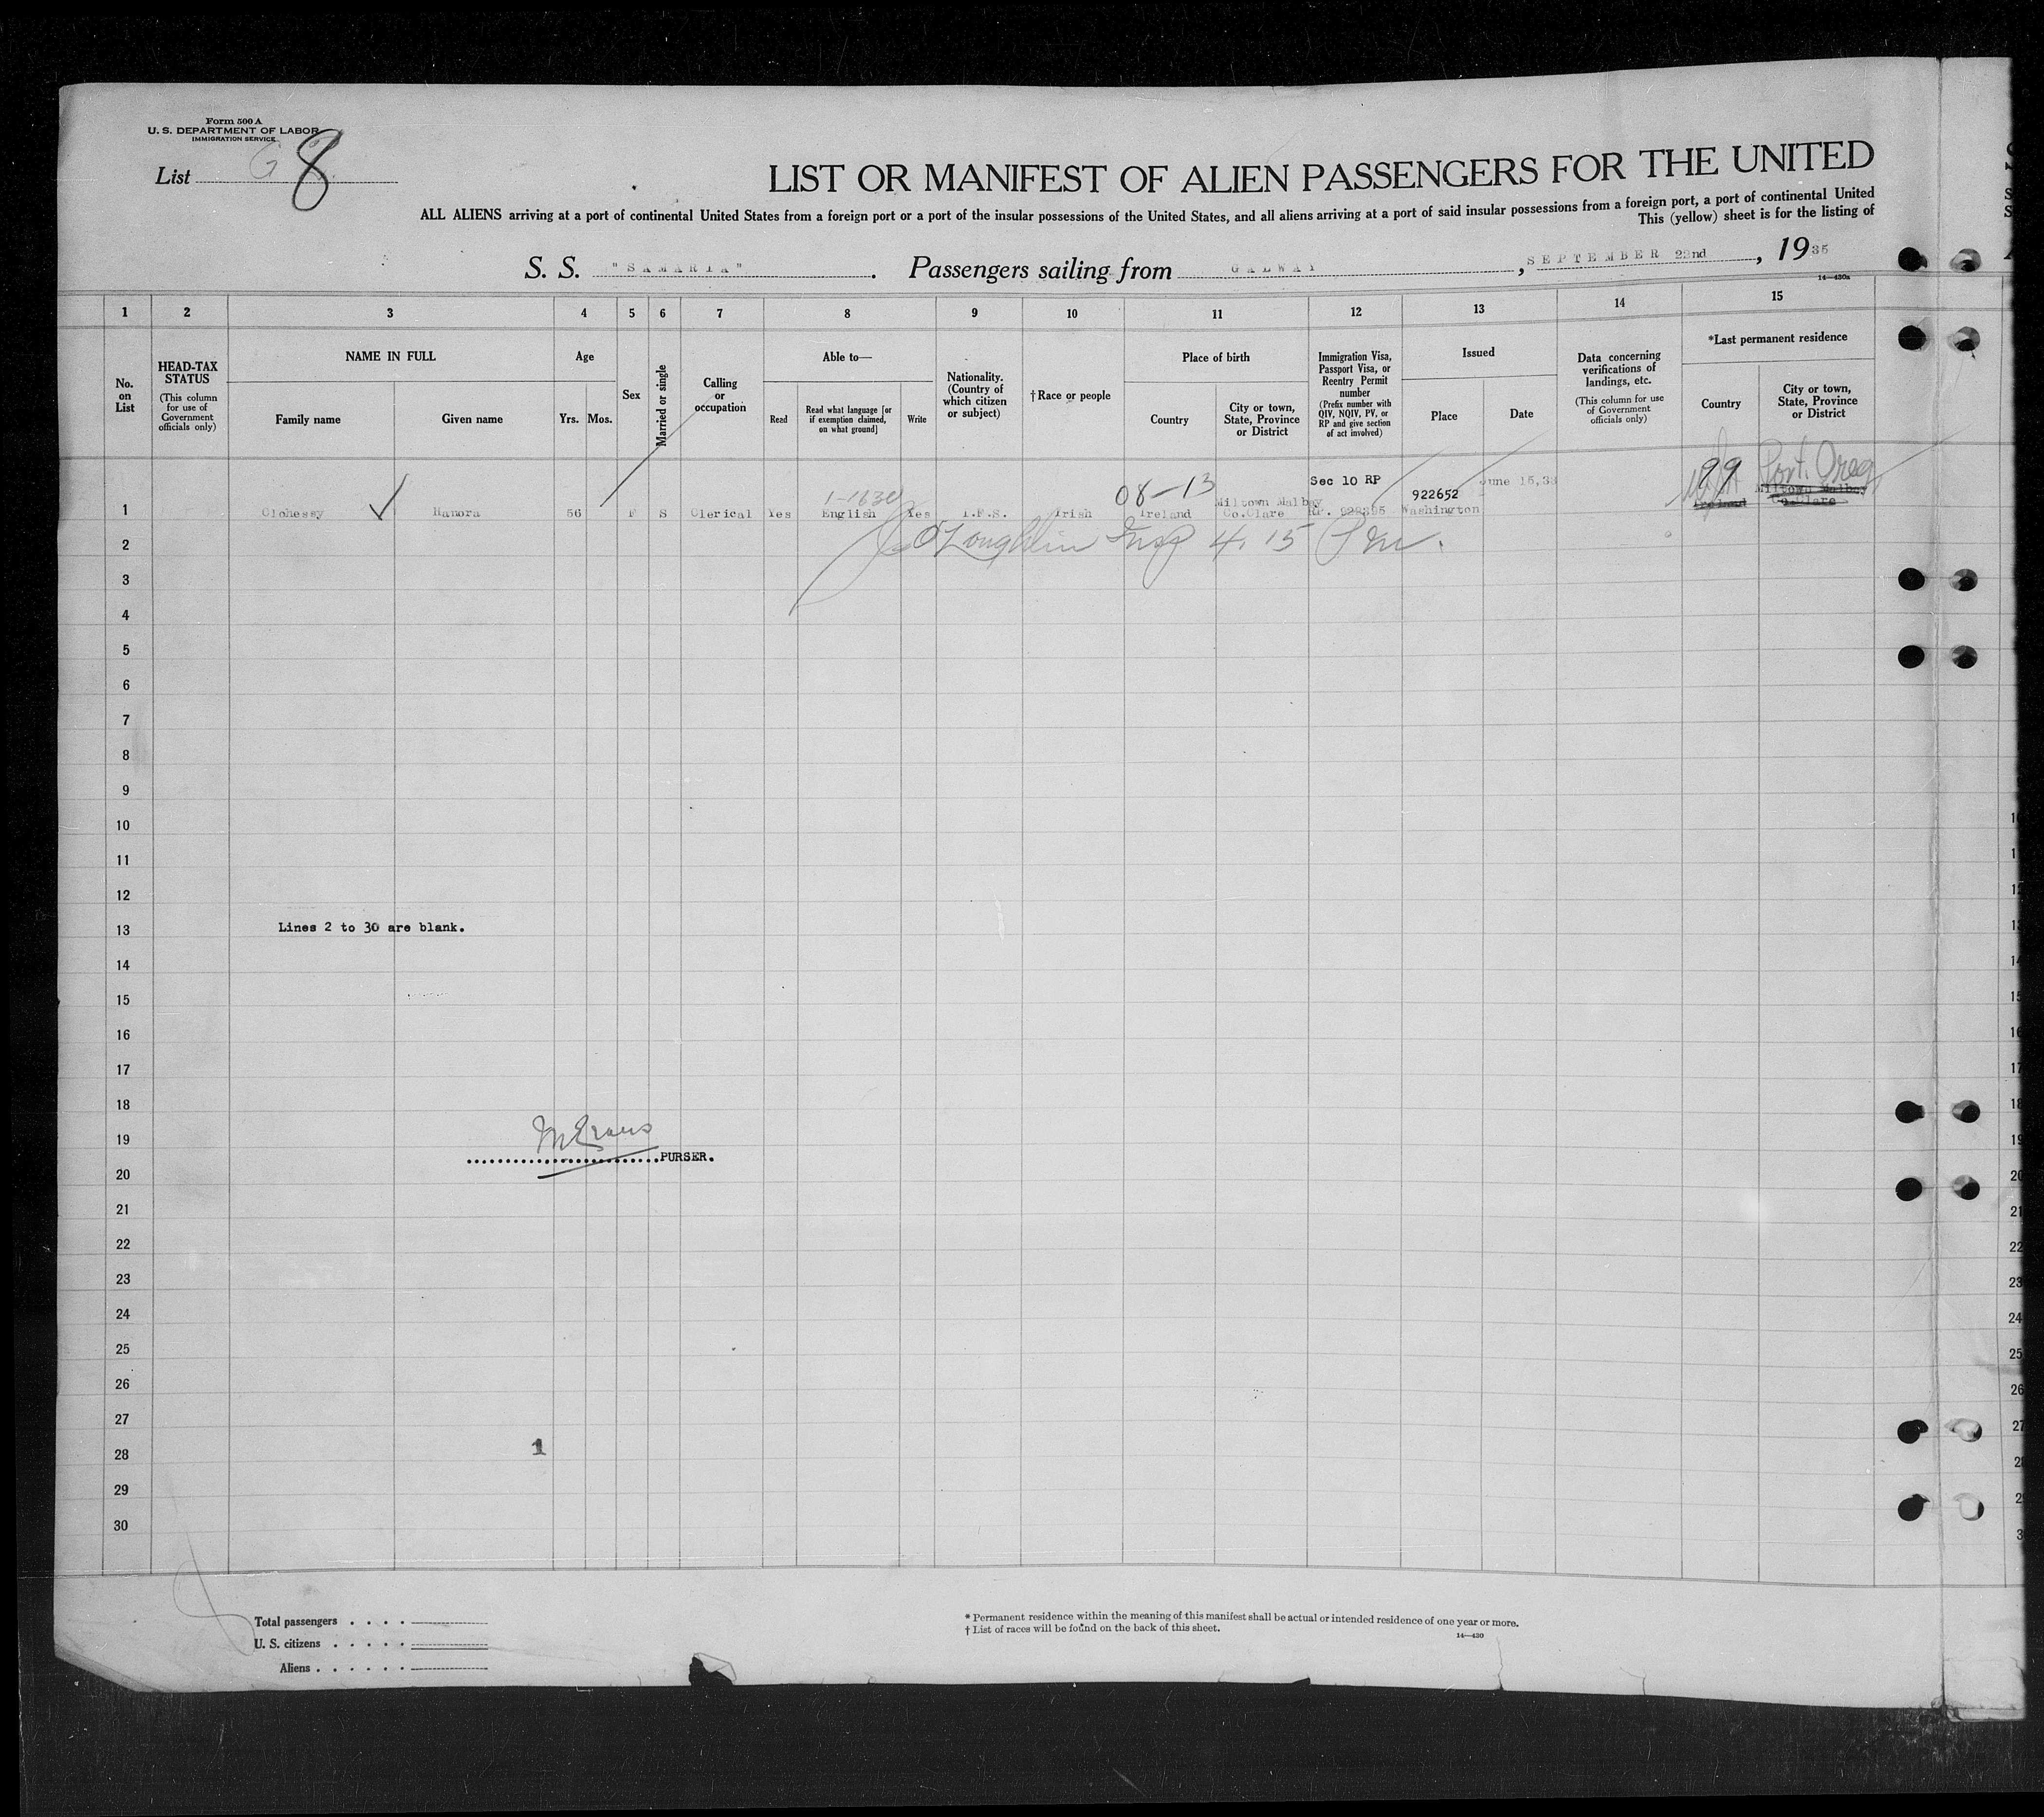 Form 500 A
U. S. DEPARTMENT OF LABOR
IMMIGRATION SERVICE
List 8
LIST OR MANIFEST OF ALIEN PASSENGERS FOR THE UNITED
ALL ALIENS arriving at a port of continental United States from a foreign port or a port of the insular possessions of the United States, and all aliens arriving at a port of said insular possessions from a foreign port, a port of continental United
This (yellow) sheet is for the listing of
S. S. "SAMARIA". Passengers sailing from GALWAY, SEPTEMBER 22nd, 1935
14—430a
1 2 3 4 5 6 7 8 9 10 11 12 13 14 15
No. on List
HEAD-TAX STATUS
(This column for use of Government officials only)
NAME IN FULL
Family name
Given name
Age
Yrs. Mos.
Sex
Married or single
Calling or occupation
Able to—
Read
Read what language [or if exemption claimed, on what ground]
Write
Nationality. (Country of which citizen or subject)
†Race or people
Place of birth
Country
City or town, State, Province or District
Immigration Visa, Passport Visa, or Reentry Permit number
(Prefix number with QIV, NQIV, PV, or RP and give section of act involved)
Issued
Place
Date
Data concerning verifications of landings, etc.
(This column for use of Government officials only)
*Last permanent residence
Country
City or town, State, Province or District
99 Port. Oreg
1-1630 08-13 Sec 10 RP 922652 June 15,33
Miltown Malbay Miltown Malbay
1 Clohessy Hanora 56 F S Clerical Yes English Yes I.F.S. Irish Ireland Co.Clare RP. 928395 Washington Ireland Co.Clare
O'Loughlin Insp 4.15 Pm.
2
3
4
5
6
7
8
9
10
11
12
13 Lines 2 to 30 are blank.
14
15
16
17
18
19 M Evans
PURSER.
20
21
22
23
24
25
26
27
28 1
29
30
Total passengers
U. S. citizens
Aliens
* Permanent residence within the meaning of this manifest shall be actual or intended residence of one year or more.
† List of races will be found on the back of this sheet.
14—430